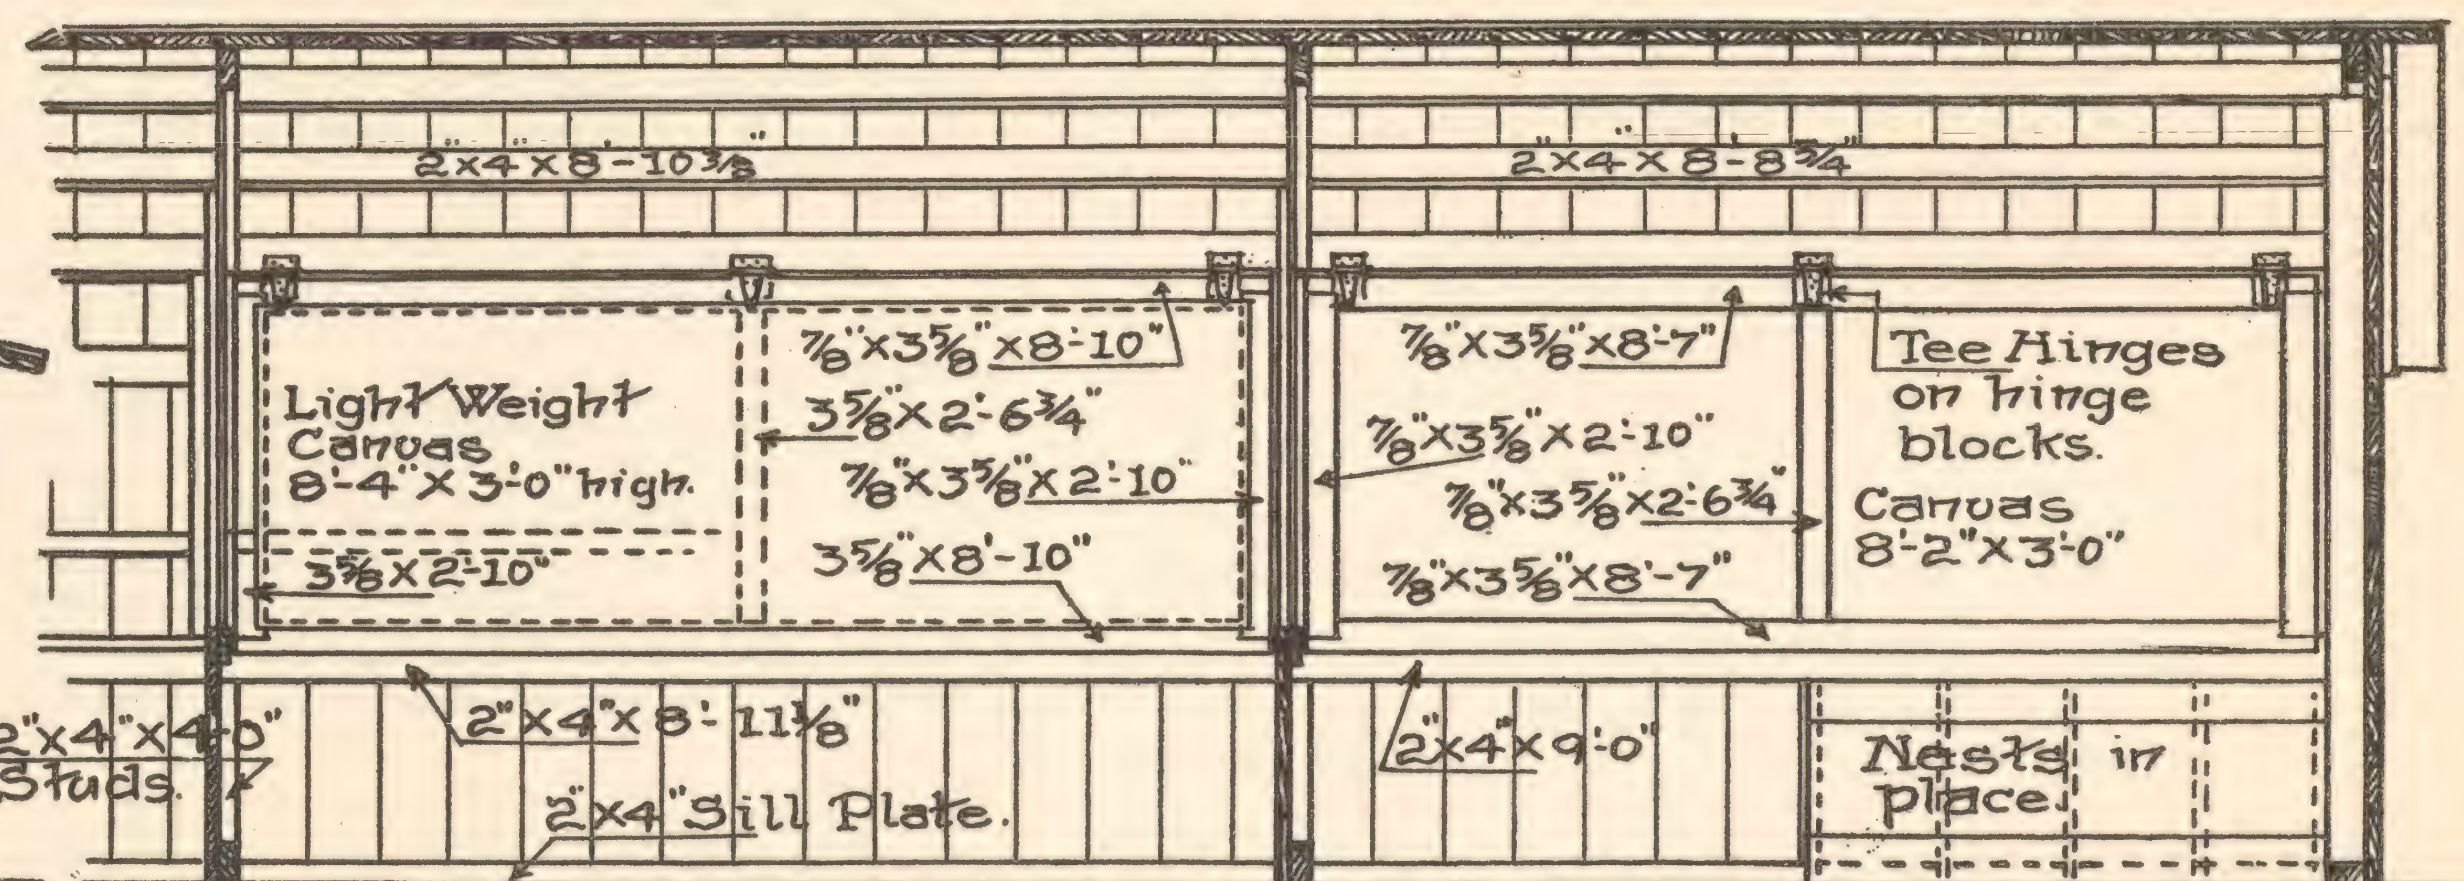 2"x4"x8'-10 3/8"
2"x4"x8'-8 3/4"
Light Weight
Canvas
8'-4"x3'-0" high.
3 5/8"x2'-10"
7/8"x3 5/8"x8'-10"
3 5/8"x2'-6 3/4"
7/8"x3 5/8"x2'-10"
3 5/8"x8'-10"
7/8"x3 5/8"x8'-7"
7/8"x3 5/8"x2'-10"
7/8"x3 5/8"x2'-6 3/4"
7/8"x3 5/8"x8'-7"
Tee Hinges
on hinge
blocks.
Canvas
8'-2"x3'-0"
2"x4"x4'-0"
Studs.
2"x4"x8'-11 1/8"
2"x4" Sill Plate.
2"x4"x9'-0"
Nests in
place.